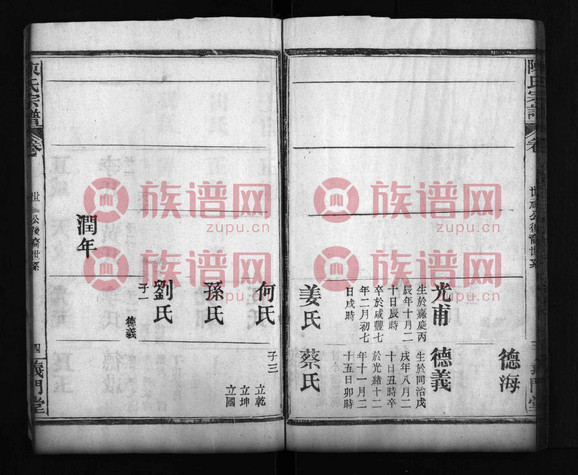 陳氏宗譜
卷
德海
光甫
生於嘉慶丙
辰年十月二
十日辰時
卒於咸豐七
年二月初七
日戌時
姜氏
德義
生於同治戌
戌年八月二
十日丑時卒
於光緒十二
年十一月二
十五日卯時
蔡氏
義門堂
何氏
子三
立乾
立坤
立國
孫氏
劉氏
子一
德義
潤年
陳氏宗譜
卷
世
公後裔世系
四
義門堂
族谱网
zupu.cn
族谱网
zupu.cn
族谱网
zupu.cn
族谱网
zupu.cn